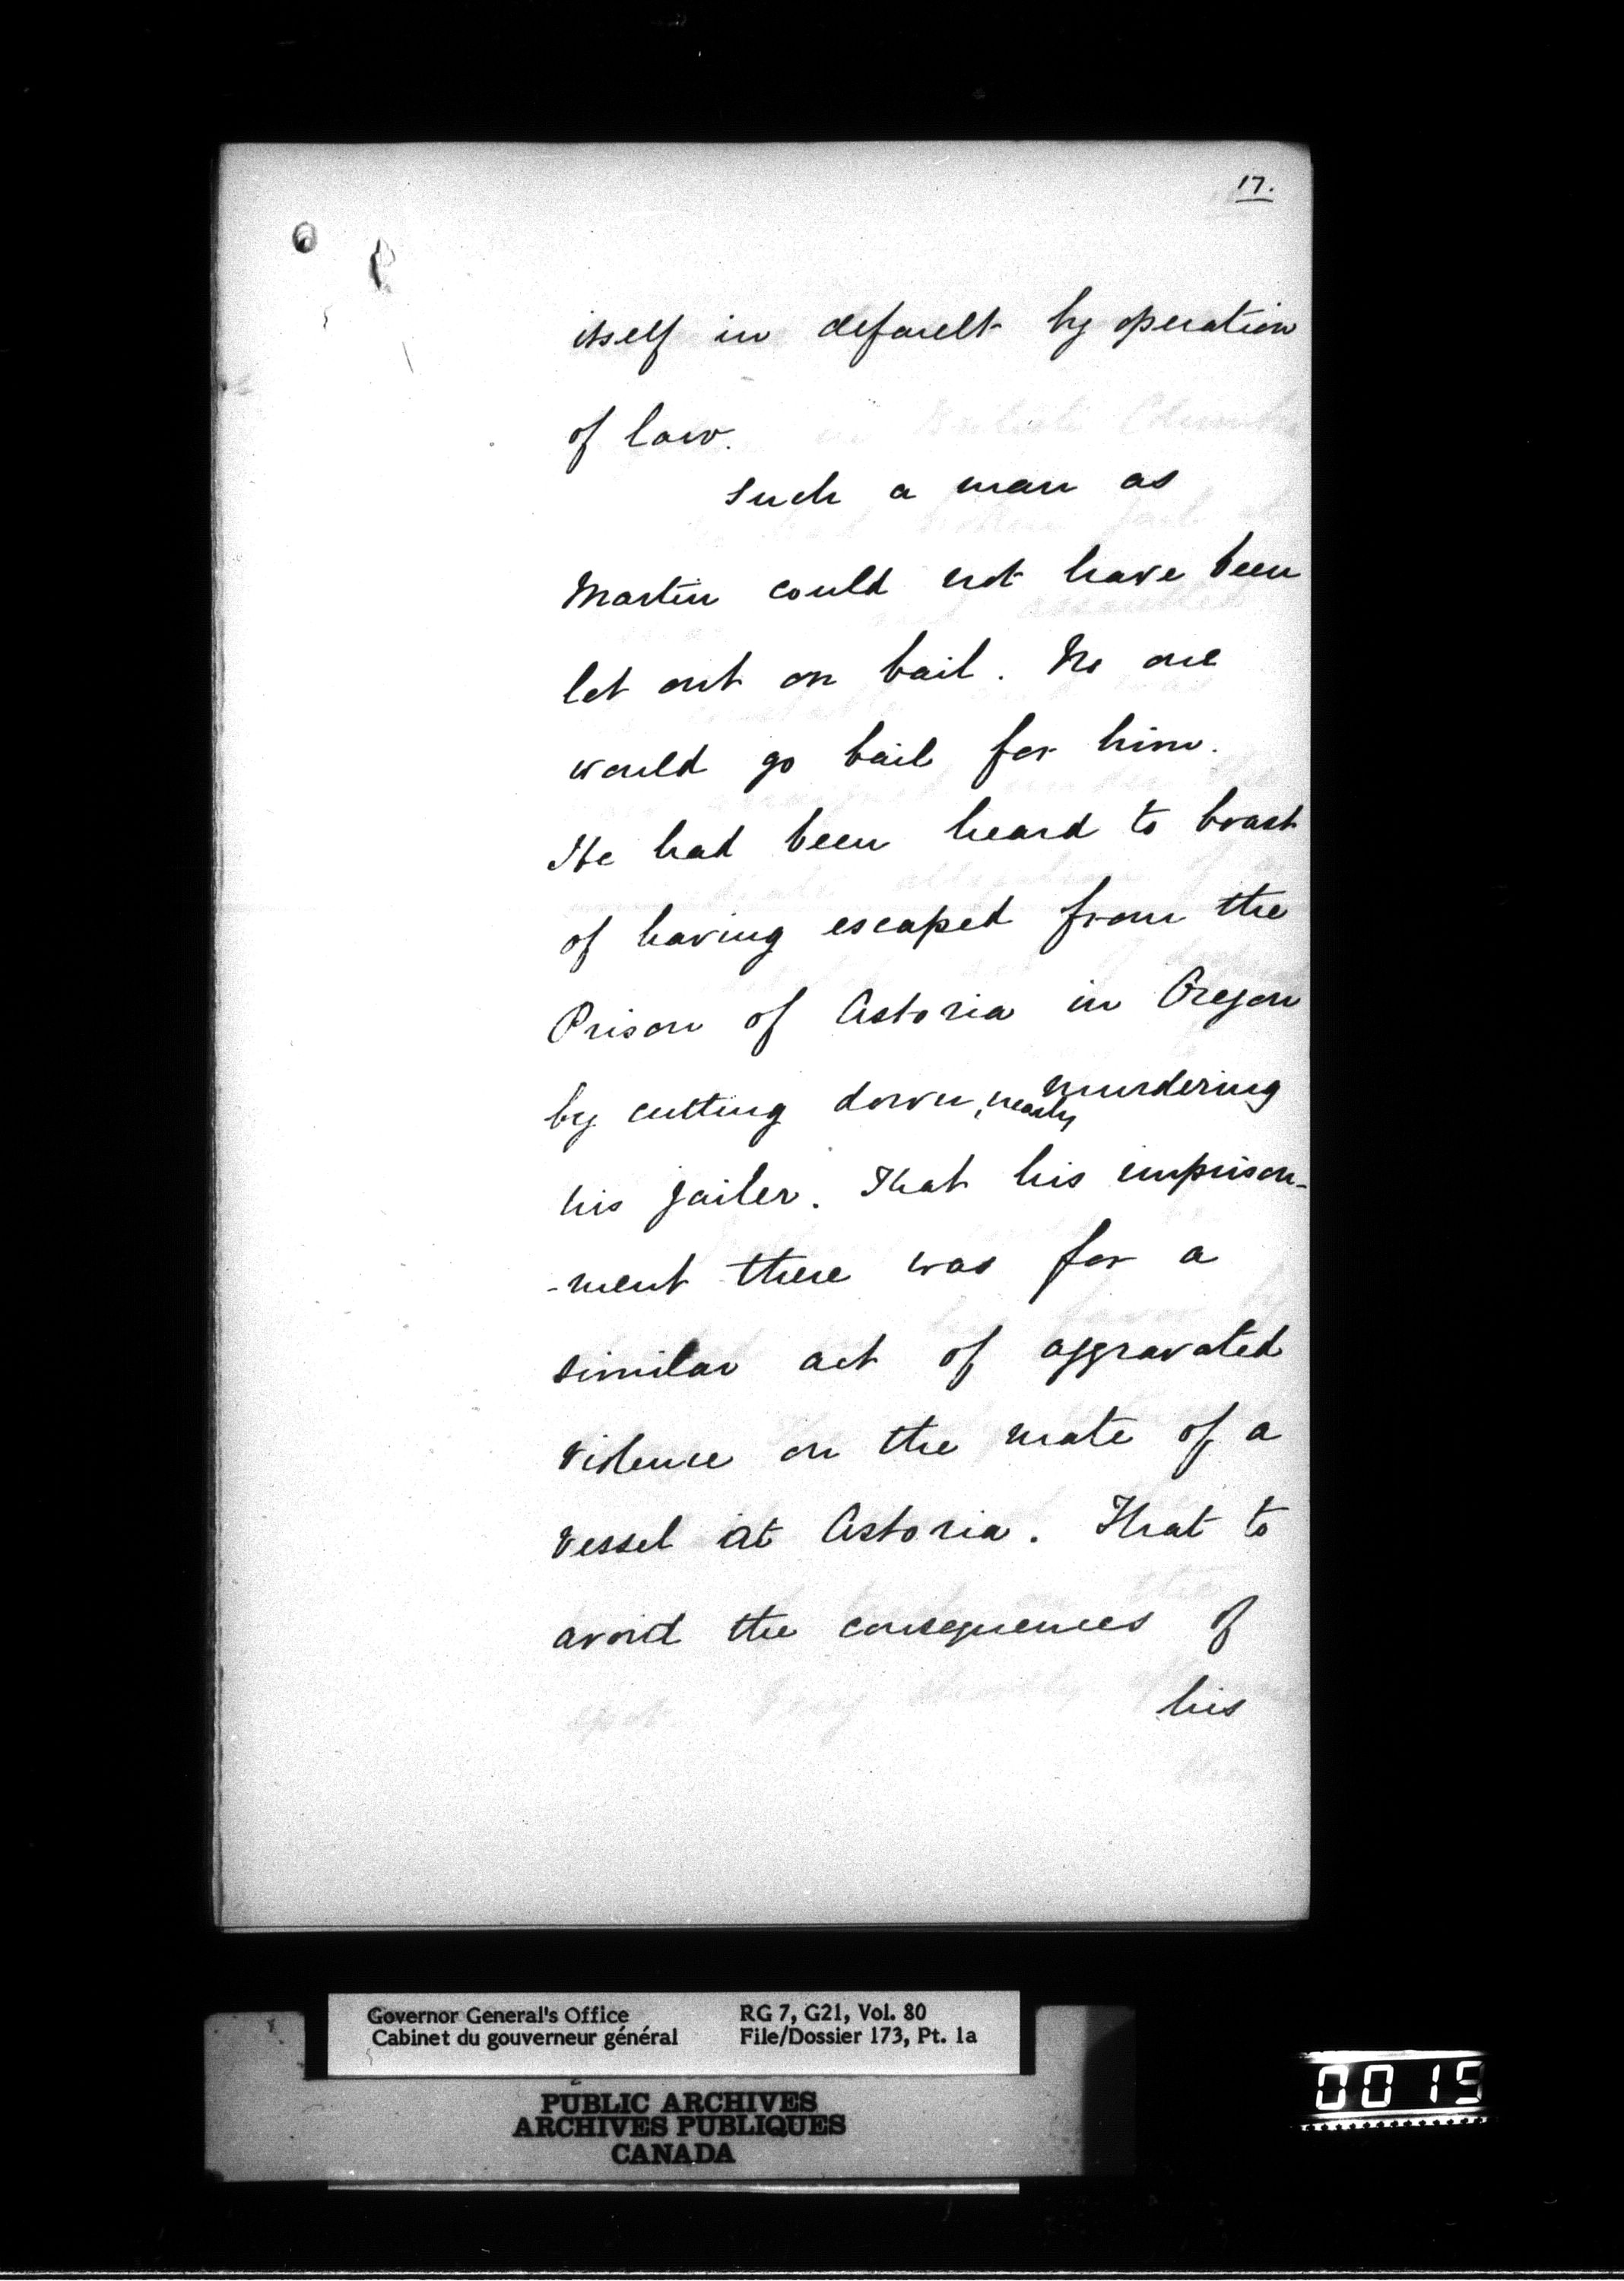 17.
itself in default by operation
of law.
Such a man as
Martin could not have been
let out on bail. No one
would go bail for him.
He had been heard to boast
of having escaped from the
Prison of Astoria in Oregon
by cutting down, nearly murdering
his jailer. That his imprison-
-ment there was for a
similar act of aggravated
violence on the mate of a
vessel at Astoria. That to
avoid the consequences of
his
Governor General's Office
Cabinet du gouverneur général
RG 7, G21, Vol. 80
File/Dossier 173, Pt. 1a
PUBLIC ARCHIVES
ARCHIVES PUBLIQUES
CANADA
0015